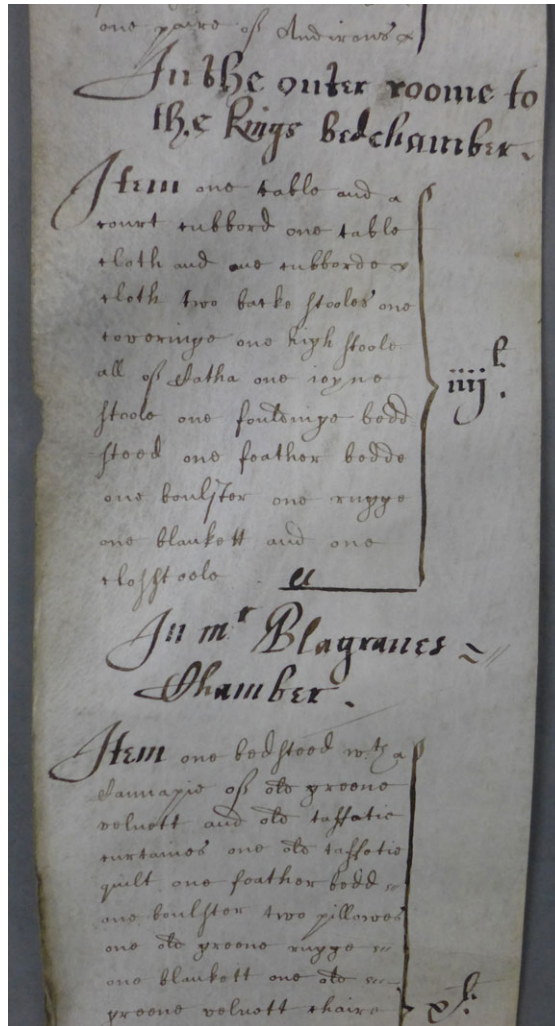 one paire of Andirons
In the outer roome to
the Kings bedchamber.
Item one table and a
court cubbord one table
cloth and one cubborde
cloth two backe stooles one
coveringe one high stoole
all of one ioyne
stoole one fouldinge bedd
steed one feather bedde
one boulster one rugge
one blankett and one
closstoole
iiij l.
In mr Blagraues
Chamber.
Item one bedsteed wth a
Cannapie of old greene
veluett and old taffatie
curtaines one old taffetie
quilt one feather bedd
one boulster two pillowes
one old greene rugge
one blankett one old
greene veluett chaire